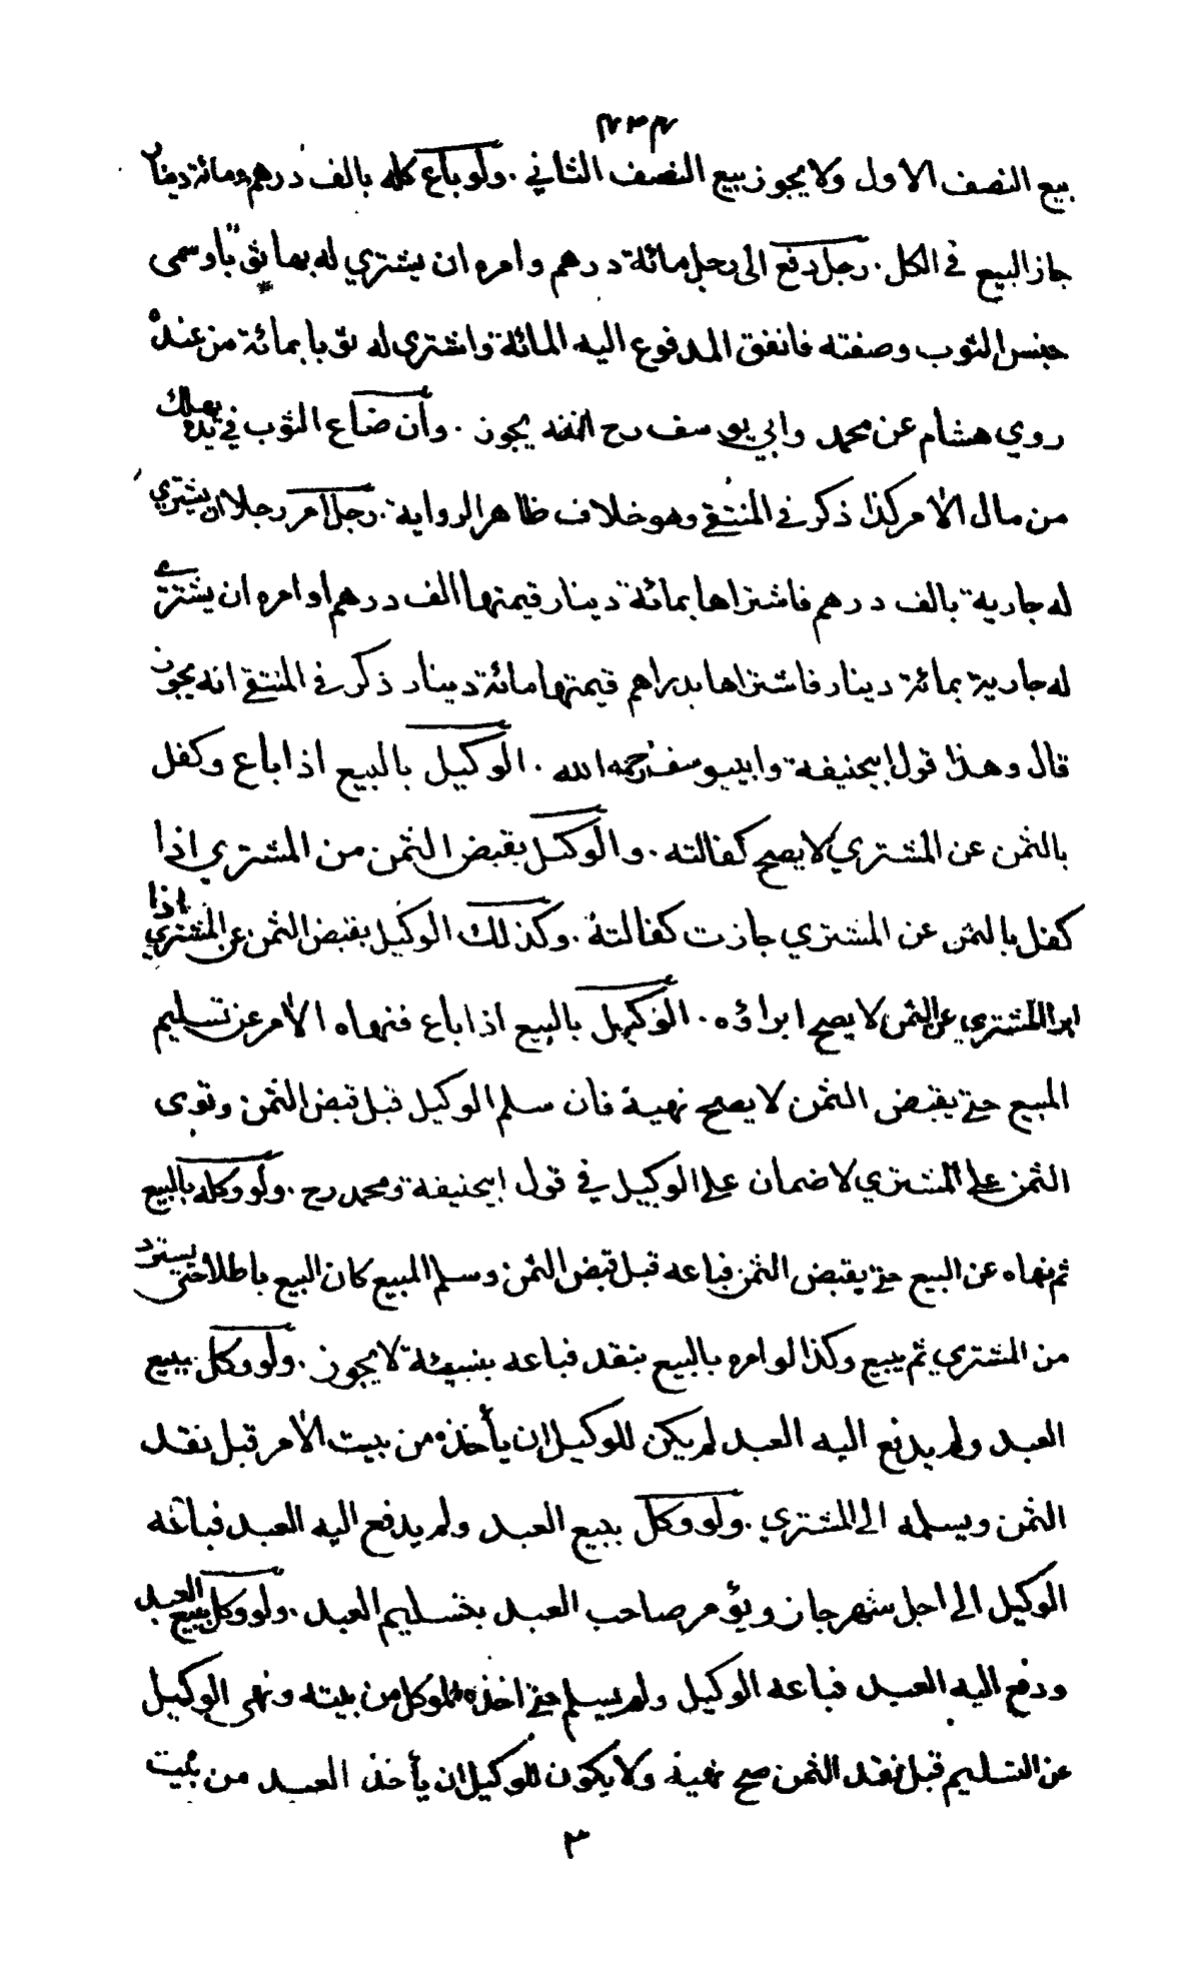 ٢٣٢
بيع النصف الاول ولا يجوز بيع النصف الثاني . ولو باع كله بالف درهم ومائة دينار
جاز البيع في الكل . رجل دفع الى رجل مائة درهم وامره ان يشتري له بها ثوبا وسمى
جنس الثوب وصفته فانفق المدفوع اليه المائة واشترى له ثوبا بمائة من عنده
روي هشام عن محمد وابي يوسف رح انه يجوز . وان ضاع الثوب في يده يهلك
من مال الآمر كذا ذكر في المنتقى وهو خلاف ظاهر الرواية . رجل امر رجلا ان يشتري
له جارية بالف درهم فاشتراها بمائة دينار قيمتها الف درهم او امره ان يشتري
له جارية بمائة دينار فاشتراها بدراهم قيمتها مائة دينار ذكر في المنتقى انه يجوز
قال وهذا قول ابيحنيفة وابييوسف رحمه الله . الوكيل بالبيع اذا باع وكفل
بالثمن عن المشتري لا يصح كفالته . والوكيل بقبض الثمن من المشتري اذا
كفل بالثمن عن المشتري جازت كفالته . وكذلك الوكيل بقبض الثمن عن المشتري اذا
ابرا المشتري عن الثمن لا يصح ابراؤه . الوكيل بالبيع اذا باع فنهاه الآمر عن تسليم
المبيع حتى يقبض الثمن لا يصح نهيه فان سلم الوكيل قبل قبض الثمن وتوى
الثمن على المشتري لا ضمان على الوكيل في قول ابيحنيفة ومحمد رح . ولو وكله بالبيع
ثم نهاه عن البيع حتى يقبض الثمن فباعه قبل قبض الثمن وسلم المبيع كان البيع باطلا حتى يسترد
من المشتري ثم يبيع وكذا لو امره بالبيع بنقد فباعه بنسيئة لا يجوز . ولو وكل ببيع
العبد ولم يدفع اليه العبد لم يكن للوكيل ان يأخذه من بيت الآمر قبل نقد
الثمن ويسلمه الى المشتري . ولو وكل ببيع العبد ولم يدفع اليه العبد فباعه
الوكيل الى اجل شهر جاز ويؤمر صاحب العبد بتسليم العبد . ولو وكل ببيع العبد
ودفع اليه العبد فباعه الوكيل ولم يسلم حتى اخذه الموكل من بيته ونهى الوكيل
عن التسليم قبل نقد الثمن صح نهيه ولا يكون للوكيل ان يأخذ العبد من بيت
٣